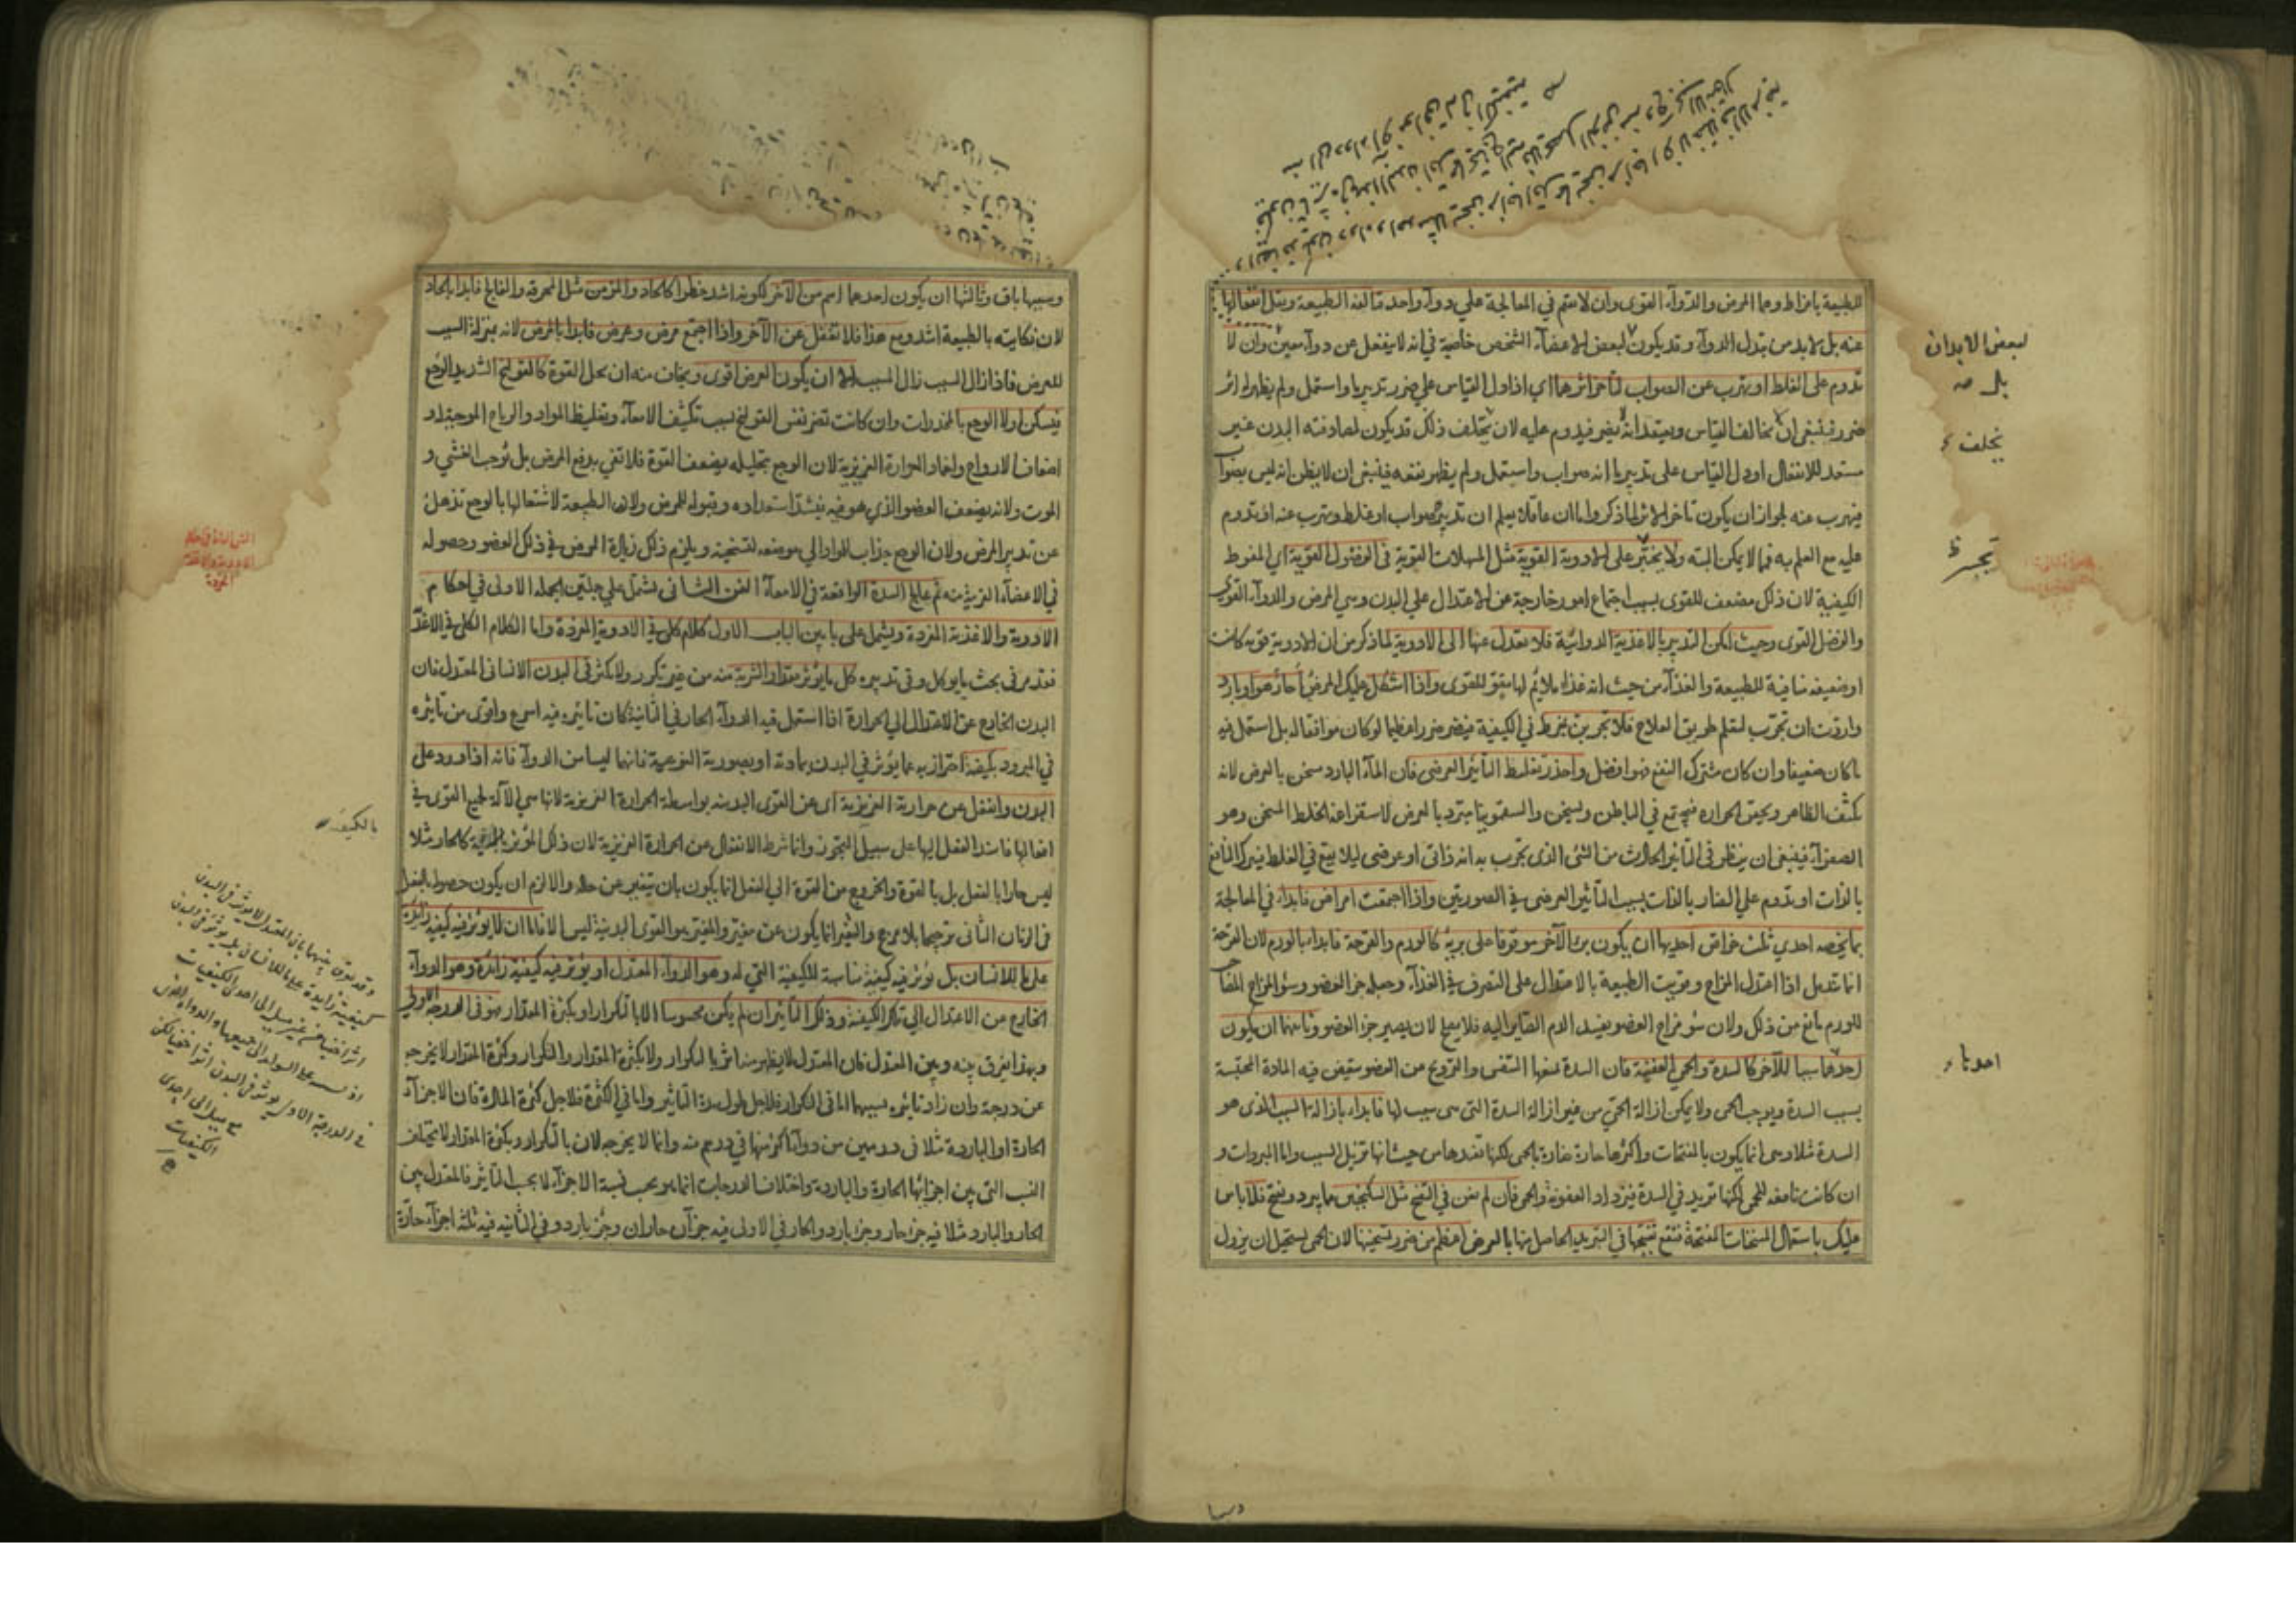 للطبيعة بافراط وهما المرض والدوآء القوى وان لا تقيم في المعالجة على دوآء واحد فتألفه الطبيعة ويقل انفعالها
عنه بل لا بد من تبدل الدوآء وقد يكون لبعض الاعضآء الشخص خاصية في انه لا ينفعل عن دوآء معين وان لا
تدوم على الغلط او تهرب عن الصواب لتأخر اثرهما اى اذا دل القياس على ضرر تدبير ما واستعمل ولم يظهر له اثر
ضرر فينبغى ان لا يخالف القياس ويعتقد انه لا يضر فيدوم عليه لان تخلف ذلك قد يكون لمصادفته البدن غير
مستعد للانفعال او دل القياس على تدبير ما انه صواب واستعمل ولم يظهر نفعه فينبغى ان لا يظن انه ليس بصواب
فيهرب عنه لجواز ان يكون تأخر الاثر لما ذكر واما ان عاقلا يعلم ان تدبيره صواب او غلط ويهرب عنه او تدوم
عليه مع العلم به فما لا يمكن البتة ولا يجسر على الادوية القوية مثل المسهلات القوية في الفصول القوية اى المفرط
الكيفية لان ذلك مضعف للقوى بسبب اجتماع امور خارجة عن الاعتدال على البدن وهى المرض والدوآء القوى
والفصل القوى وحيث امكن التدبير بالاغذية الدوائية فلا تعدل عنها الى الادوية لما ذكر من ان الادوية قوية كانت
او ضعيفة منافية للطبيعة والغذآء من حيث انه غذآء ملائم لها مقو للقوى واذا اشكل عليك المرض أحار هو او بارد
واردت ان تجرب لتعلم طريق العلاج فلا تجربن بمفرط في الكيفية فيضر ضررا عظيما لو كان موافقا له بل استعمل فيه
ما كان ضعيفا وان كان مشترك النفع فهو افضل واحذر تغليط التأثير العرضى فان المآء البارد سخن بالعرض لانه
يكثف الظاهر ويحقن الحرارة فيجتمع في الباطن وتسخن والسقمونيا مبرد بالعرض لاستفراغه الخلط المسخن وهو
الصفرآء فينبغى ان ينظر في التأثير الحادث من الشئ الذى تجرب به انه ذاتى او عرضى ليلا يقع في الغلط فيترك النافع
بالذات او تدوم على الضار بالذات بسبب التأثير العرضى في الصورتين واذا اجتمعت امراض فابدأ في المعالجة
بما يخصه احدى ثلث خواص احديها ان يكون برء الآخر موقوفا على برئه كالورم والقرحة فابدأ بالورم لان القرحة
انما تندمل اذا اعتدل المزاج وقويت الطبيعة بالاعتدال على التصرف في الغذآء وجعله جزء العضو وسوء المزاج المصاحب
للورم مانع من ذلك ولان سوء مزاج العضو يفسد الدم الصاير اليه فلا يصلح لان يصير جزء العضو وثانيها ان يكون
احدهما سببا للآخر كالسدة والحمى العفنية فان السدة تمنعها التنفس والترويح من العضو فتعفن فيه المادة المحتبسة
بسبب السدة ويوجب الحمى ولا يمكن ازالة الحمى من غير ازالة السدة التى هى سبب لها فابدأ بازالة السبب الذى هو
السدة مثلا وهى انما يكون بالمفتحات واكثرها حارة ضارة بالحمى لكنها تفيدها من حيث انها تزيل السبب واما المبردات و
ان كانت نافعة للحمى لكنها تزيد في السدة فيزداد العفونة والحمى فان لم تغن في التفتح مثل السكنجبين مما يبرد ويفتح فلا باس
عليك باستعمال المسخنات المفتحة فنفع تفتيحها في التبريد الحاصل منها بالعرض اعظم من ضرر تسخينها لان الحمى يستحيل ان يزول
لبعض الابدان
بل صح
يخلف
تجسر
احدها
وسببها باق وثالثها ان يكون احدهما اهم من الآخر لكونه اشد خطرا كالحاد والمزمن مثل المحرقة والفالج فابدأ بالحاد
لان نكايته بالطبيعة اشد ومع هذا فلا تغفل عن الآخر واذا اجتمع مرض وعرض فابدأ بالمرض لانه بمنزلة السبب
للعرض فاذا زال السبب زال المسبب الا ان يكون العرض اقوى ويخاف منه ان يحل القوة كالقولنج الشديد الوجع
فيسكن اولا الوجع بالمخدرات وان كانت تضر نفس القولنج بسبب تكثيف الامعآء وتغليظ المواد والرياح الموجبة له و
اضعاف الارواح واخماد الحرارة الغريزية لان الوجع بتحليله يضعف القوة فلا تفى بدفع المرض بل يوجب الغشى و
الموت ولانه يضعف العضو الذى هو فيه فيشتد استعداده وقبوله للمرض ولان الطبيعة لاشتغالها بالوجع تذهل
عن تدبير المرض ولان الوجع جذاب للمواد الى موضعه لتسخينه ويلزم ذلك زيادة المرض في ذلك العضو وحصوله
في الاعضآء القريبة منه ثم عالج السدة الواقعة في الامعآء الفن الثانى يشتمل على جملتين الجملة الاولى في احكام
الادوية والاغذية المفردة ويشتمل على بابين الباب الاول كلام كلى في الادوية المفردة واما الكلام الكلى في الاغذية
فقد مر في بحث ما يوكل وفى تدبيره كل ما يؤثر مقدار الشربة منه من غير تكرر ولا كثر في البدن الانسانى المعتدل فان
البدن الخارج عن الاعتدال الى الحرارة اذا استعمل فيه الدوآء الحار في الثانية كان تأثيره فيه اسرع واقوى من تأثيره
في المبرود بكيفيته احترازا به عما يؤثر في البدن بمادته او بصورته النوعية فانهما ليسا من الدوآء فانه اذا ورد على
البدن وانفعل عن حرارته الغريزية اى عن القوى البدنية بواسطة الحرارة الغريزية لانها هى الآلة لجميع القوى في
افعالها فاسند الفعل اليها على سبيل التجوز وانما شرط الانفعال عن الحرارة الغريزية لان ذلك المؤثر بالكيفية كالحار مثلا
ليس حارا بالفعل بل بالقوة والخروج من القوة الى الفعل انما يكون بان يتغير عن حاله والا لزم ان يكون حصوله بالفعل
في الزمان الثانى ترجيحا بلا مرجح والتغير انما يكون عن مغير والمغير هو القوى البدنية ليس الا فاما ان لا يؤثر فيه كيفية زائدة
على ما للانسان بل يؤثر فيه كيفية مناسبة للكيفية التى له وهو الدوآء المعتدل او يؤثر فيه كيفية زائدة وهو الدوآء
الخارج من الاعتدال الى تلك الكيفية وذلك التأثير ان لم يكن محسوسا الا بالتكرار او بكثرة المقدار فهو في الدرجة الاولى
وبهذا يفرق بينه وبين المعتدل فان المعتدل لا يظهر منه اثر بالتكرار ولا بكثرة المقدار والتكرار وكثرة المقدار لا يخرجه
عن درجة وان زاد تأثيره بسببهما اما في التكرار فلاجل طول مدة التأثير واما في الكثرة فلاجل كثرة المادة فان الاجزآء
الحارة او الباردة مثلا في درهمين من دوآء اكثر منها في درهم منه وانما لا يخرجه لان بالتكرار وبكثرة المقدار لا تختلف
النسب التى بين اجزائها الحارة والباردة واختلاف الدرجات انما هو بحسب نسبة الاجزآء لا بحسب التأثير فالمعتدل بين
الحار والبارد مثلا فيه جزء حار وجزء بارد والحار في الاولى فيه جزآن حاران وجزء بارد وفى الثانية فيه ثلثة اجزآء حارة
بالكيفية
وقد يفرق بينهما بان المعتدل لا يؤثر في البدن
كيفية زايدة على ما للانسان بل يؤثر في البدن
مع ميل الى احدى
الكيفيات